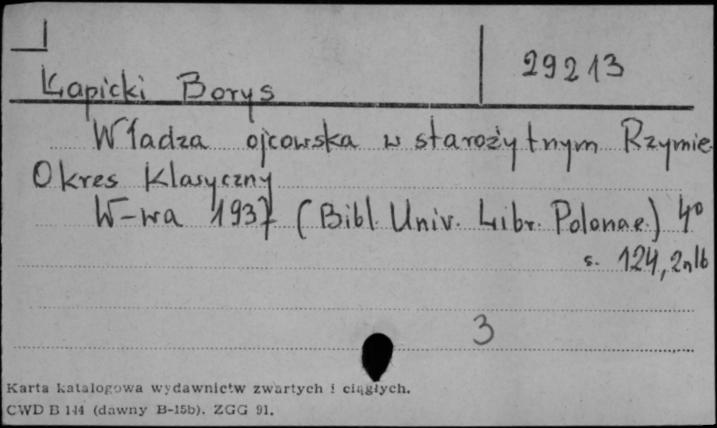 29213
Łapicki Borys
Władza ojcowska w starożytnym Rzymie.
Okres klasyczny
W-wa 1937 (Bibl. Univ. Libr. Polonae.) 4°
s. 124, 2nlb
3
Karta katalogowa wydawnictw zwartych i ciągłych.
CWD B 144 (dawny B-15b). ZGG 91.